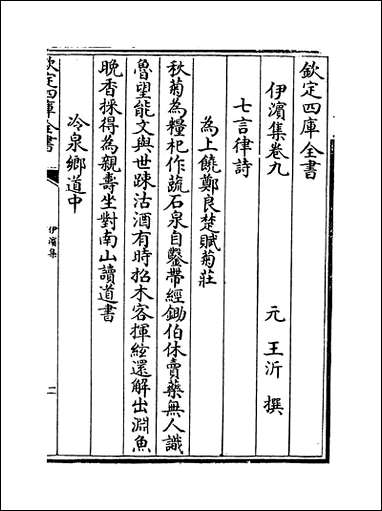 欽定四庫全書
伊濱集卷九
元 王沂 撰
七言律詩
為上饒鄭良楚賦菊莊
秋菊為糧杞作蔬石泉自鑿帶經鋤伯休賣藥無人識
魯望能文與世踈沽酒有時招木客揮絃還解出淵魚
晚香採得為親壽坐對南山讀道書
冷泉鄉道中
欽定四庫全書
伊濱集
二